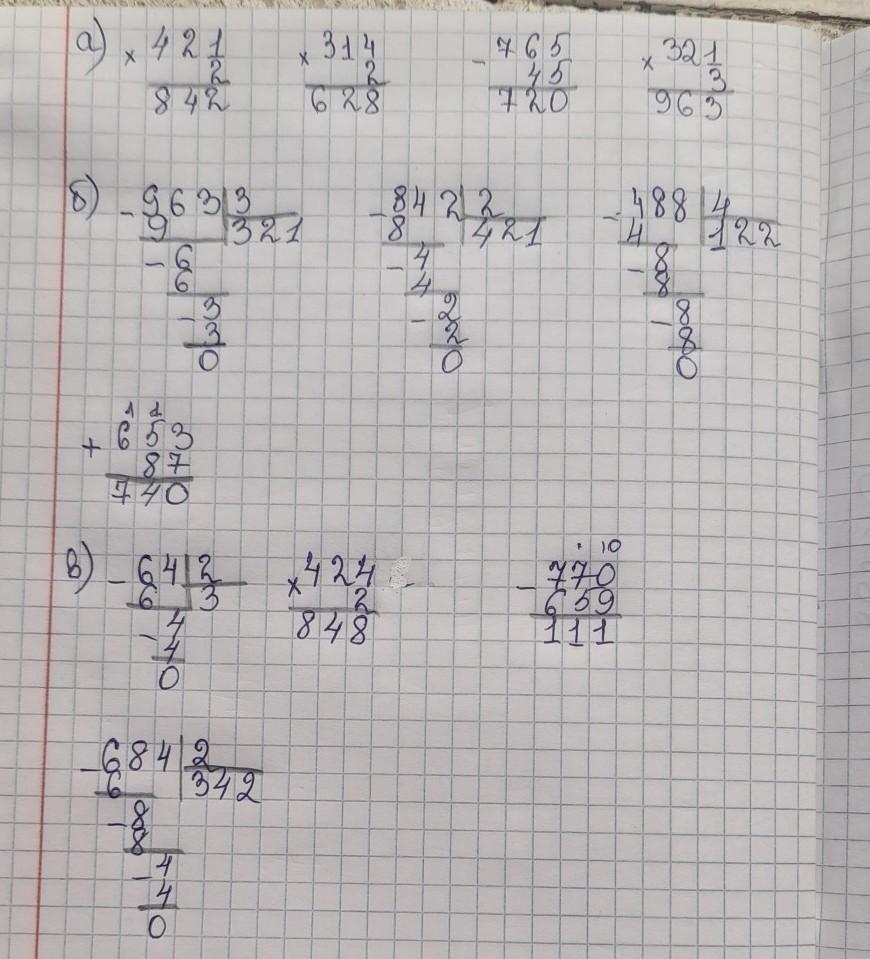 а) × 421 × 314 - 765 × 321
2 2 45 3
842 628 720 963
б) - 963 3 - 842 2 - 488 4
9 321 8 421 4 122
- 6 - 4 - 8
6 4 8
- 3 - 2 - 8
3 2 8
0 0 0
1 1
+ 653
87
740
в) - 64 2 × 424 - . 10
6 3 2 770
- 4 848 - 659
4 111
0
- 684 2
6 342
- 8
8
- 4
4
0